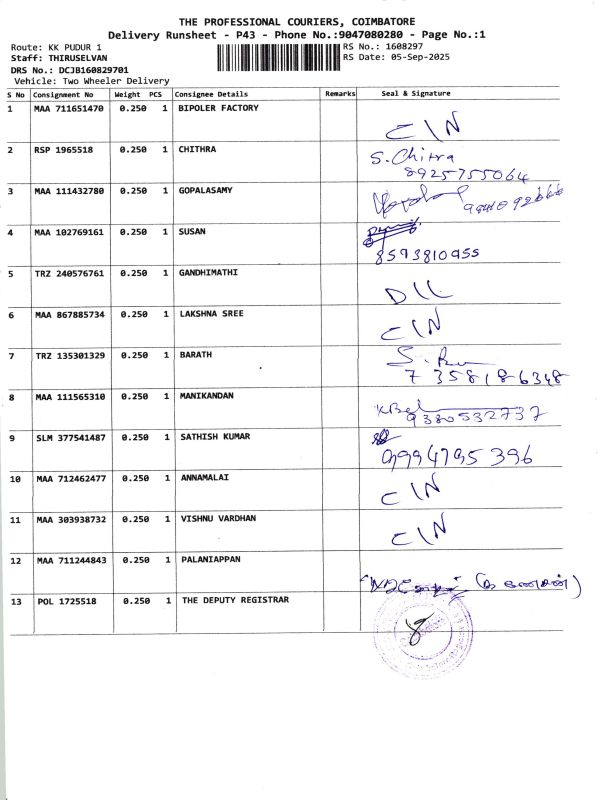 THE PROFESSIONAL COURIERS, COIMBATORE
Delivery Runsheet - P43 - Phone No.:9047080280 - Page No.:1
Route: KK PUDUR 1 RS No.: 1608297
Staff: THIRUSELVAN RS Date: 05-Sep-2025
DRS No.: DCJB160829701
Vehicle: Two Wheeler Delivery
S No Consignment No Weight PCS Consignee Details Remarks Seal & Signature
1 MAA 711651470 0.250 1 BIPOLER FACTORY
C IN
2 RSP 1965518 0.250 1 CHITHRA S. Chitra
8925755064
3 MAA 111432780 0.250 1 GOPALASAMY
4 MAA 102769161 0.250 1 SUSAN
8593810955
5 TRZ 240576761 0.250 1 GANDHIMATHI
DIL
6 MAA 867885734 0.250 1 LAKSHNA SREE
C IN
7 TRZ 135301329 0.250 1 BARATH
7358186348
8 MAA 111565310 0.250 1 MANIKANDAN
9380532737
9 SLM 377541487 0.250 1 SATHISH KUMAR
9994795396
10 MAA 712462477 0.250 1 ANNAMALAI
C IN
11 MAA 303938732 0.250 1 VISHNU VARDHAN
C IN
12 MAA 711244843 0.250 1 PALANIAPPAN
13 POL 1725518 0.250 1 THE DEPUTY REGISTRAR